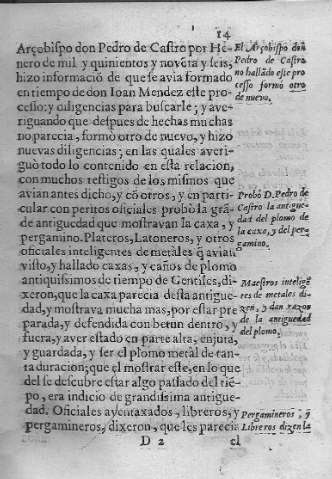 14
Arçobispo don Pedro de Castro por He-
nero de mil y quinientos y novēta y seis,
hizo informaciō de que se avia formado
en tiempo de don Ioan Mendez este pro-
cesso: y diligencias para buscarle; y ave-
riguando que despues de hechas muchas
no parecia, formò otro de nuevo, y hizo
nuevas diligencias; en las quales averi-
guò todo lo contenido en esta relacion,
con muchos testigos de los mismos que
avian antes dicho, y cō otros, y en parti-
cular con peritos oficiales probò la grā-
de antiguedad que mostravan la caxa, y
pergamino. Plateros, Latoneros, y otros
oficiales inteligentes de metales q̄ avian
visto, y hallado caxas, y caños de plomo
antiquissimos de tiempo de Gentiles, di-
xeron, que la caxa parecia desta antigue-
dad, y mostrava mucha mas, por estar pre
parada, y defendida con betun dentro, y
fuera, y aver estado en parte alta, enjuta,
y guardada, y ser el plomo metal de tan-
ta duracion; que el mostrar este, en lo que
del se descubre estar algo passado del tiē-
po, era indicio de grandissima antigue-
dad. Oficiales libreros, y
pergamineros, dixeron, que les parecia
D 2 el
El Arçobispo don
Pedro de Castro
no hallādo este pro
cesso formò otro
de nuevo.
Probò D. Pedro de
Castro la antigue-
dad del plomo de
la caxa, y del perga-
mino.
Maestros inteligē
res de metales di-
zen, y dan razon
de la antiguedad
del plomo.
Pergamineros, y
Libreros dizen la